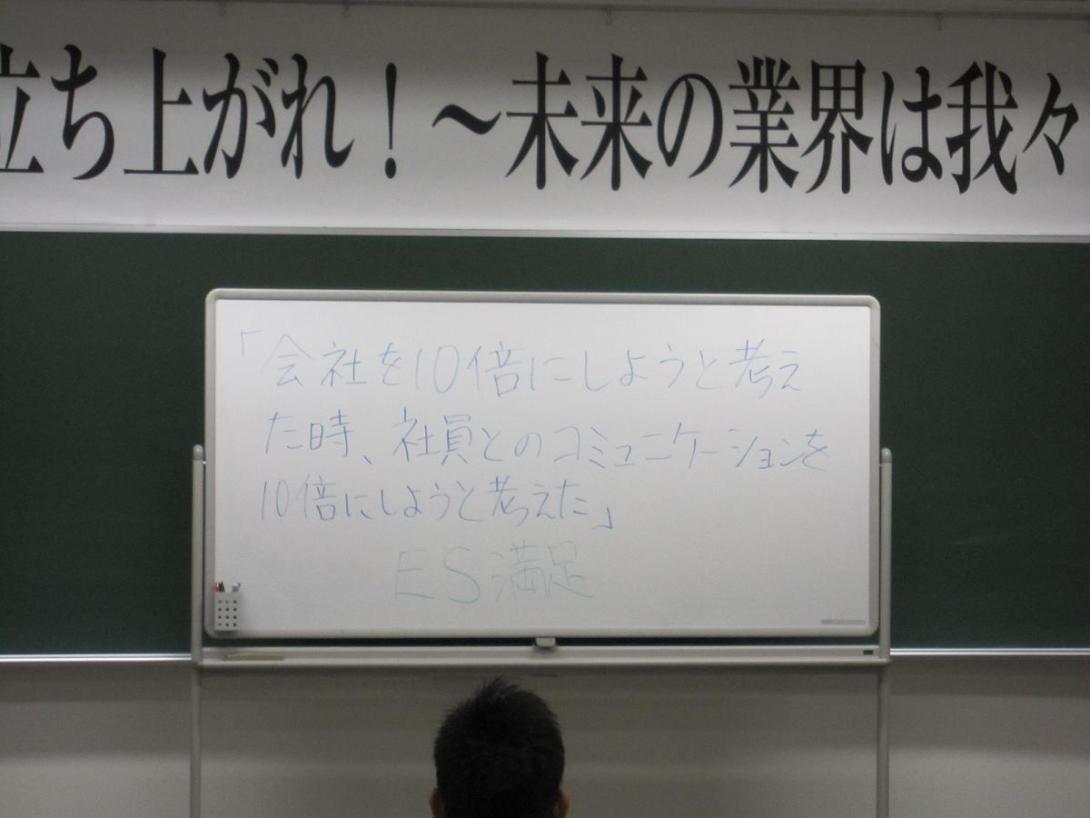 立ち上がれ！～未来の業界は我々
「会社を10倍にしようと考え
た時、社員とのコミュニケーションを
10倍にしようと考えた」
ES満足